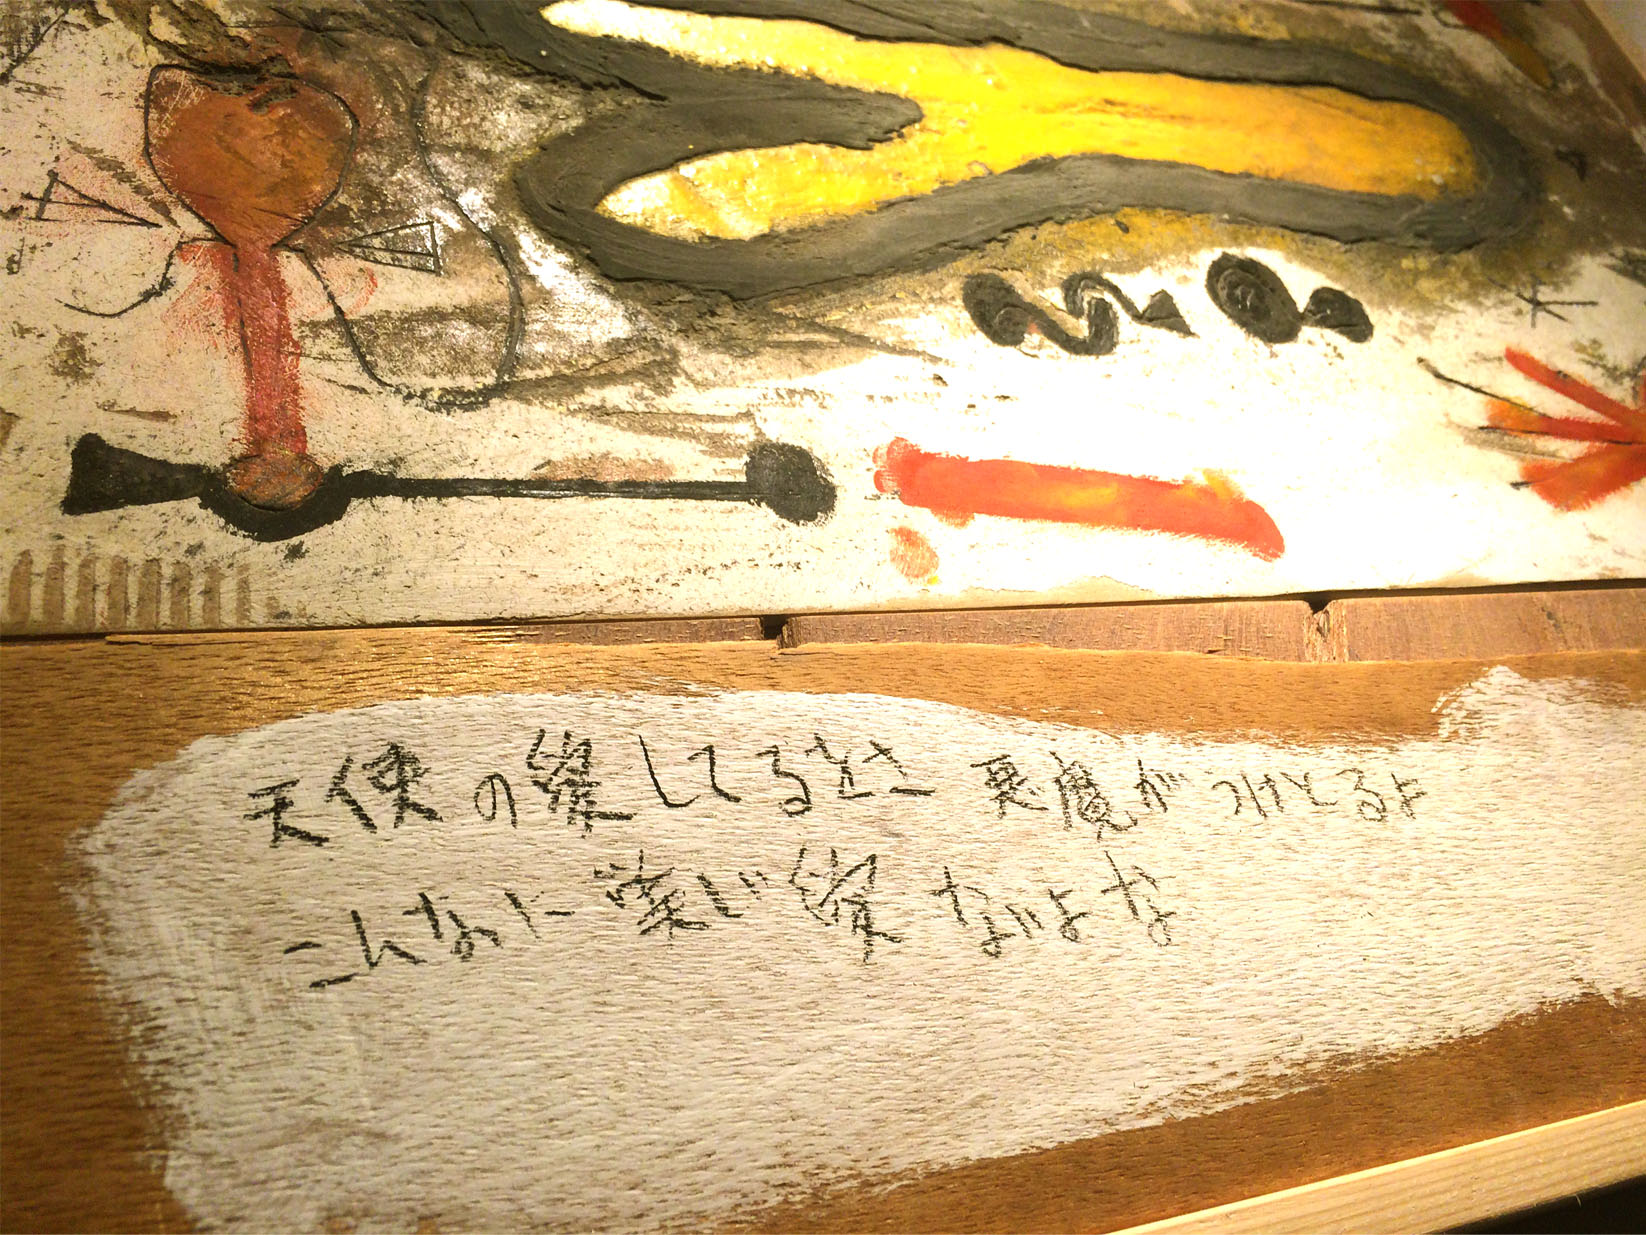 天使の してるとき 悪魔がつけとるよ
こんなに楽しい ないよな